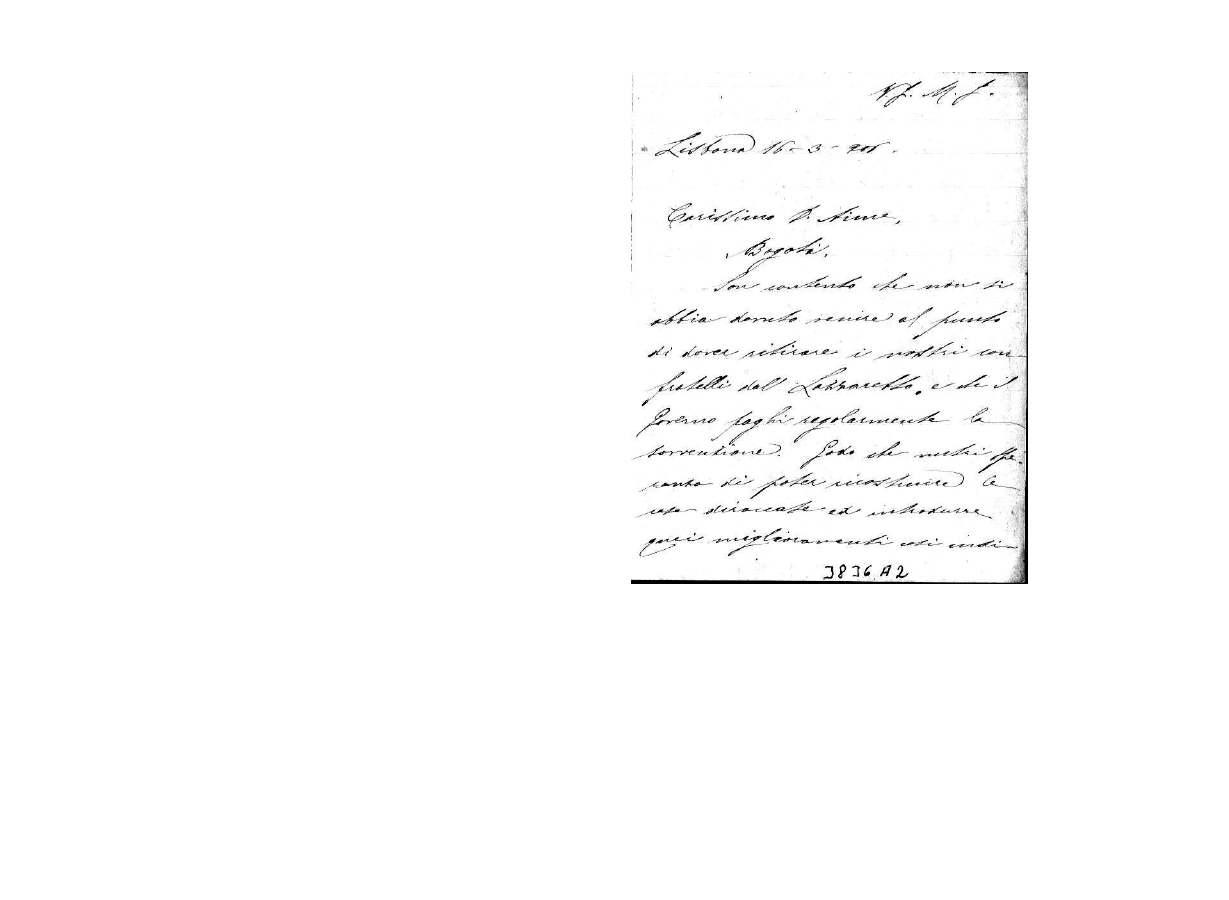 V. J. M. J.
Lisbona 16 - 3 - 906.
Carissimo D. Aime,
Bogotà.
Son contento che non si
abbia dovuto venire al punto
di dover ritirare i nostri con-
fratelli dal Lazzaretto, e che il
Governo paghi regolarmente la
sovvenzione. Godo che nutri spe-
ranza di poter ricostruire le
case diroccate ed introdurre
quei miglioramenti che indi-
3836 A2